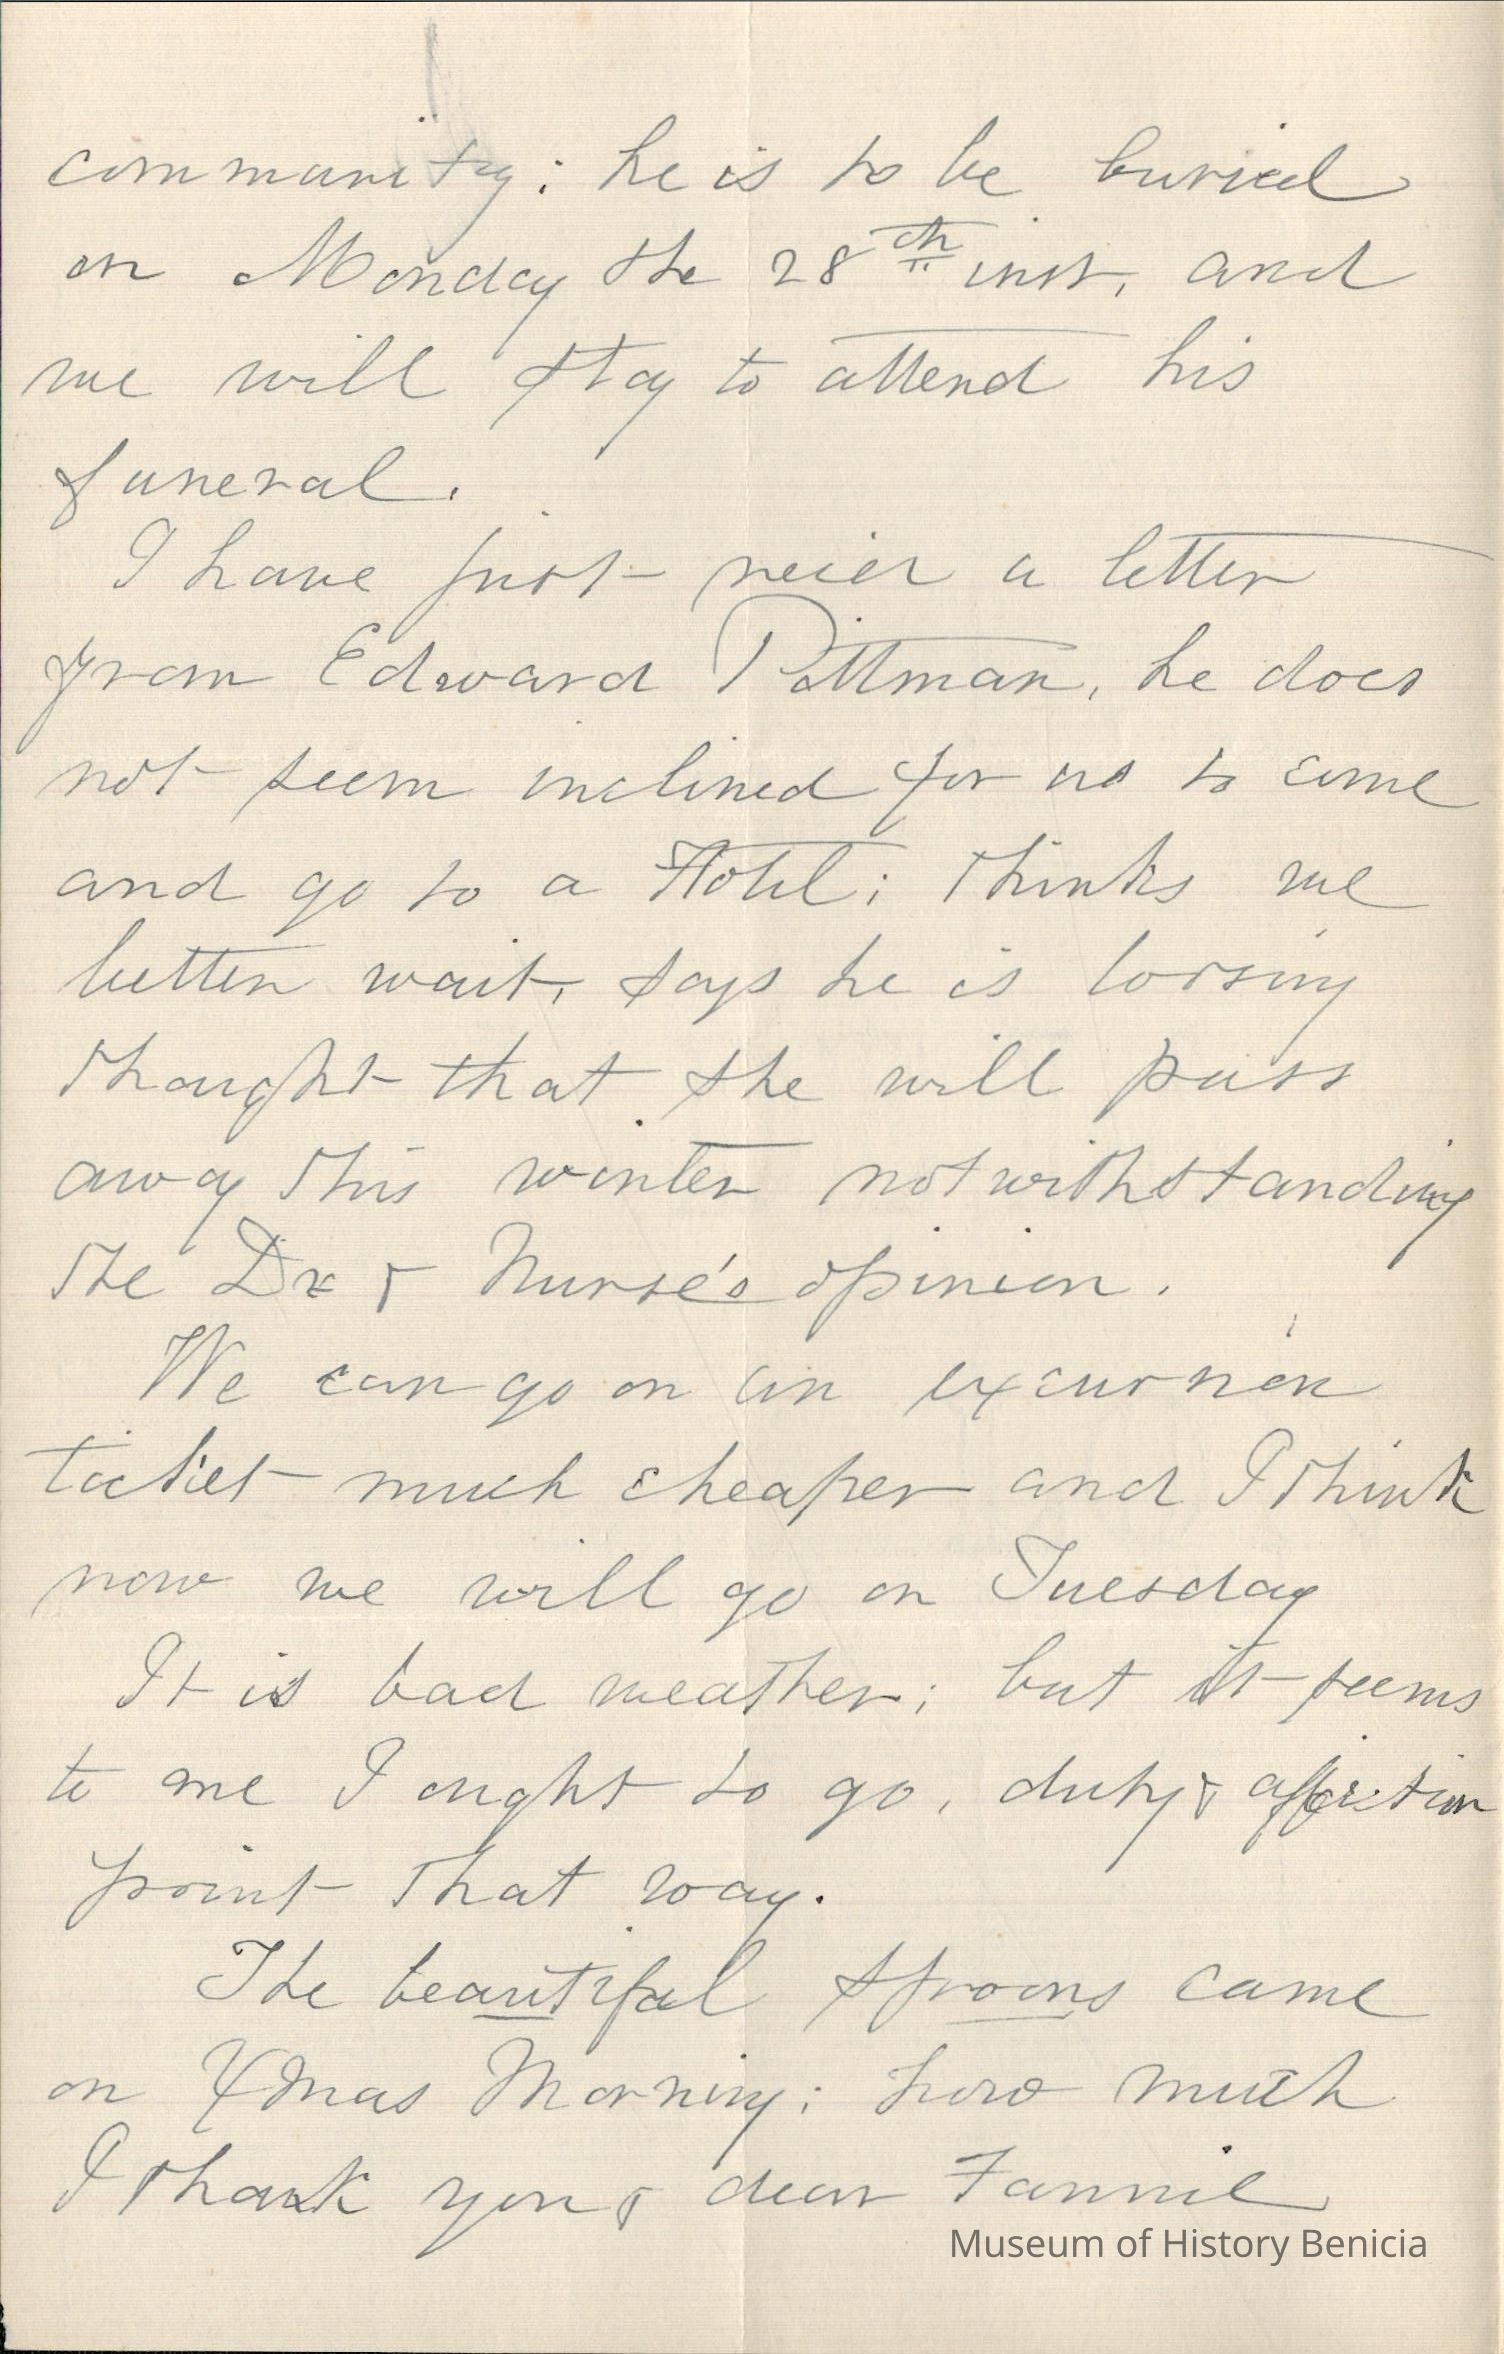 community; he is to be buried
on Monday the 28th inst, and
we will stay to attend his
funeral.
I have just a letter
from Edward Pittman, he does
not seem inclined for us to come
and go to a Hotel; thinks we
better wait, says he is loosing
thought that she will pass
away this winter notwithstanding
the Dr & Nurse's opinion.
We can go on an excursion
ticket much cheaper and I think
now we will go on Tuesday
It is bad weather; but it seems
to me I ought to go, duty & affection
point that way.
The beautiful spoons came
on Xmas Morning; how much
I thank you & dear Fannie
Museum of History Benicia